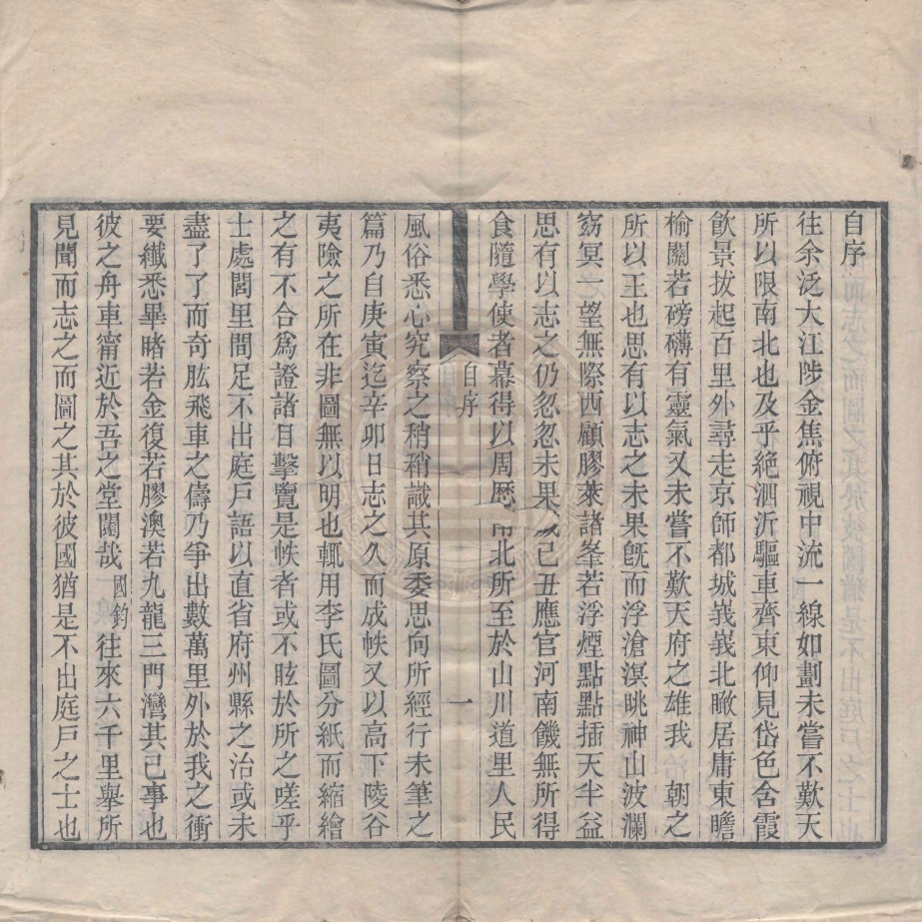 自序
往余泛大江陟金焦俯視中流一線如劃未嘗不歎天
所以限南北也及乎絶泗沂驅車齊東仰見岱色含霞
飮景拔起百里外尋走京師都城峩峩北瞰居庸東瞻
榆關若磅礴有靈氣又未嘗不歎天府之雄我　朝之
所以王也思有以志之未果旣而浮滄溟眺神山波瀾
窈冥一望無際西顧膠萊諸峯若浮煙點點揷天半益
思有以志之仍忽忽未果歲己丑應官河南饑無所得
食隨學使者幕得以周歷南北所至於山川道里人民
自序
一
風俗悉心究察之稍稍識其原委思向所經行未筆之
篇乃自庚寅迄辛卯日志之久而成帙又以高下陵谷
夷險之所在非圖無以明也輒用李氏圖分紙而縮繪
之有不合爲證諸目擊覽是帙者或不眩於所之嗟乎
士處閭里間足不出庭戸語以直省府州縣之治或未
盡了了而奇肱飛車之儔乃爭出數萬里外於我之衝
要纎悉畢睹若金復若膠澳若九龍三門灣其已事也
彼之舟車甯近於吾之堂闥哉國鈞往來六千里舉所
見聞而志之而圖之其於彼國猶是不出庭戸之士也